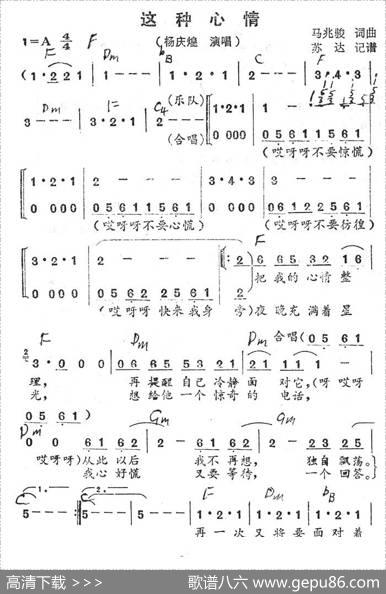 这种心情
1=A 4/4 F
(杨庆煌 演唱)
马兆骏 词曲
苏达 记谱
F Dm bB C F
(1·2 2 1 | 1 - - - | 2 - - - | 2 - - - | 3·4 3
Dm F C4
3 - - - | 3·2·1 | 2 - - - (乐队) 1·2·1 | 2 - - -
(合唱) 0 0 0 0 | 0 5 6 1 1 5 6 1
(哎呀呀不要惊慌)
1·2·1 | 2 - - - | 3·4·3
0 0 0 0 | 0 5 6 1 1 5 6 1 | 0 0 0 0 | 0 6 1 2 2 5 6 1
(哎呀呀不要心慌) (哎呀呀不要彷徨)
F
3·2·1 | 2 - - - 2 6 6 5 3 2 1 6
把我的心情整
0 0 0 0 | 0 5 6 2 2 5 6 1 2
(哎呀呀快来我身 旁)夜晚充满着星
F Dm Dm 合唱(0 5 6 1
3·0 0 0 | 0 6 6 5 5 3 2 1 | 2 1 1 -
理, 再提醒自己冷静面 对它,(呀哎呀
光, 想给他一个惊奇的 电话,
0 5 6 1)
Dm Gm Gm
0 0 6 1 6 2 | 2 - 6 1 6 2 | 2 - 2 3 2 5
哎呀呀)从此以后 我不再想, 独自飘荡。
我心好慌 又要等待, 一个回答。
1. C 2. C F Dm bB
5 - - - :| 5 - - - | 5 - - - | 1 - 1 1 | 1 - 1 1 | 1 - 1 1
再一次又将要面对着
高清下载 >>>
歌谱八六 www.gepu86.com